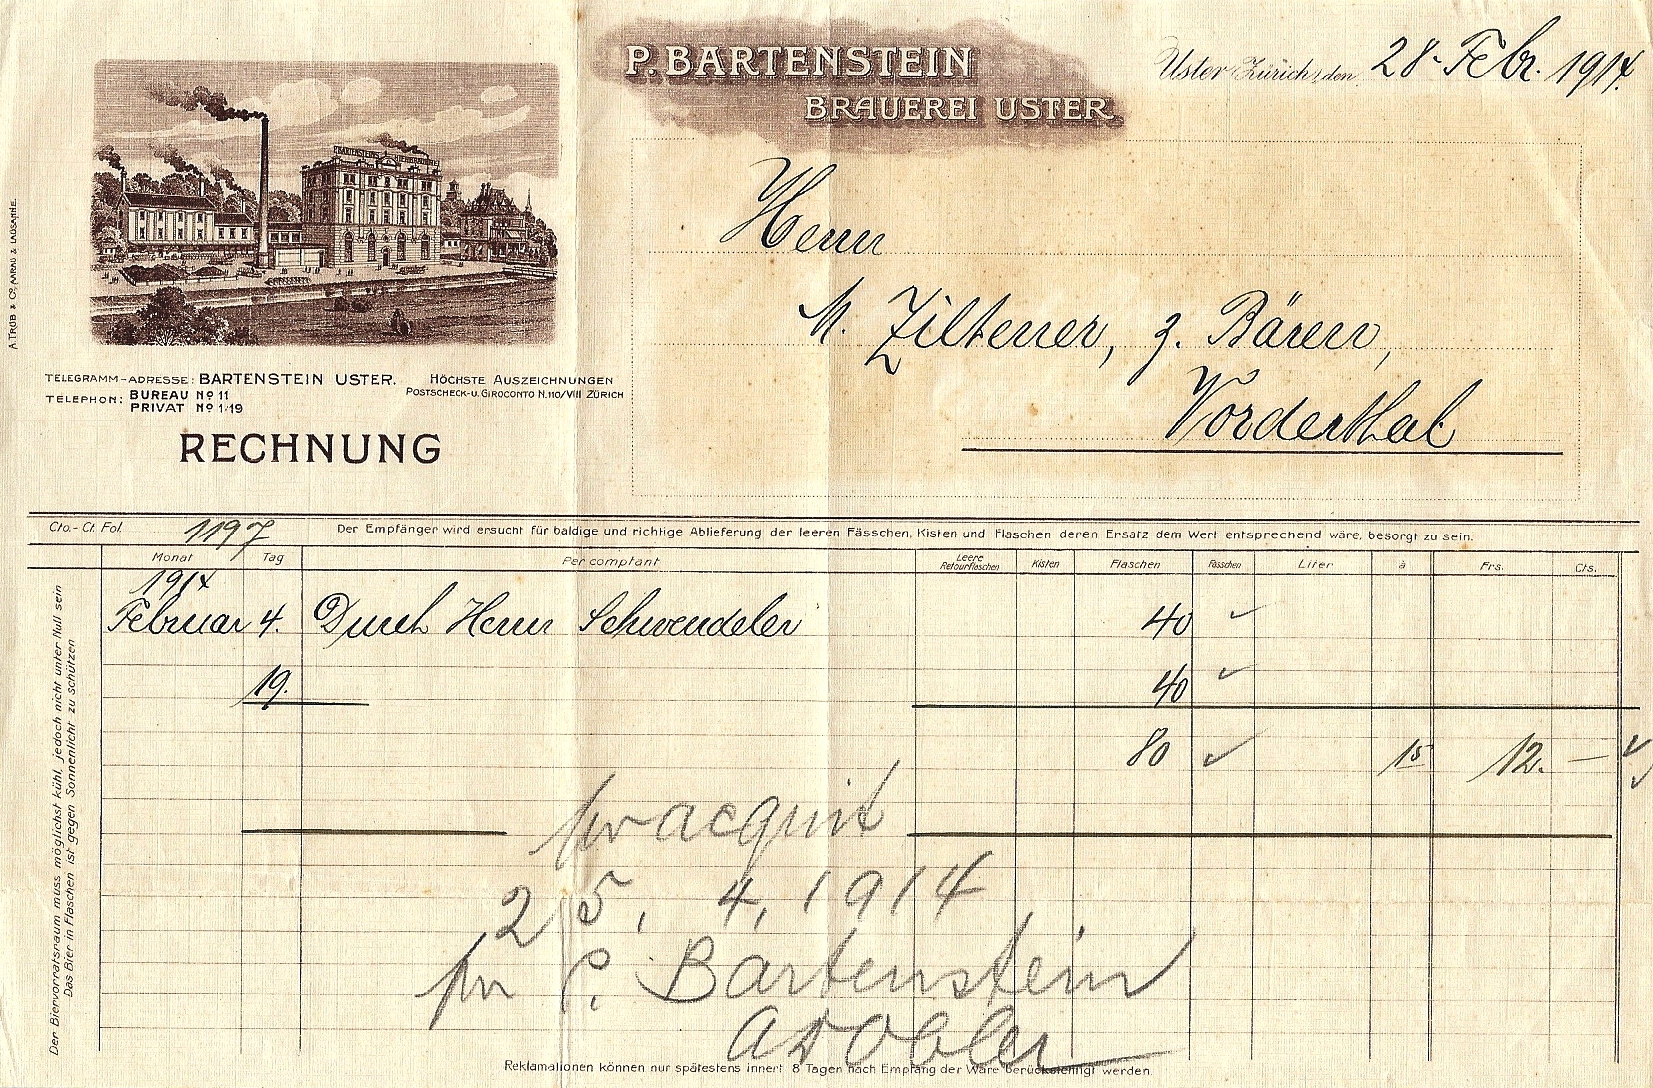 P. BARTENSTEIN
BRAUEREI USTER
Uster (Zürich), den 28. Febr. 1914.
P. BARTENSTEIN BIERBRAUEREI
A. TRÜB & CO, AARAU & LAUSANNE.
TELEGRAMM-ADRESSE: BARTENSTEIN USTER.
TELEPHON: BUREAU No 11
PRIVAT No 119
HÖCHSTE AUSZEICHNUNGEN
POSTSCHECK- U. GIROCONTO N. 110/VIII ZÜRICH
RECHNUNG
Herrn
M. Ziltener, z. Bären,
Vorderthal
Cto.-Ct. Fol. 1197
Der Empfänger wird ersucht für baldige und richtige Ablieferung der leeren Fässchen, Kisten und Flaschen deren Ersatz dem Wert entsprechend wäre, besorgt zu sein.
Monat Tag Per comptant Leere Retourflaschen Kisten Flaschen Fässchen Liter à Frs. Cts.
1914
Februar 4. Durch Herrn Schwendeler 40
19. 40
80 15 12. —
pr acquit
25. 4. 1914
pr P. Bartenstein
A Dobler
Der Biervorratsraum muss möglichst kühl, jedoch nicht unter Null sein
Das Bier in Flaschen ist gegen Sonnenlicht zu schützen
Reklamationen können nur spätestens innert 8 Tagen nach Empfang der Ware berücksichtigt werden.